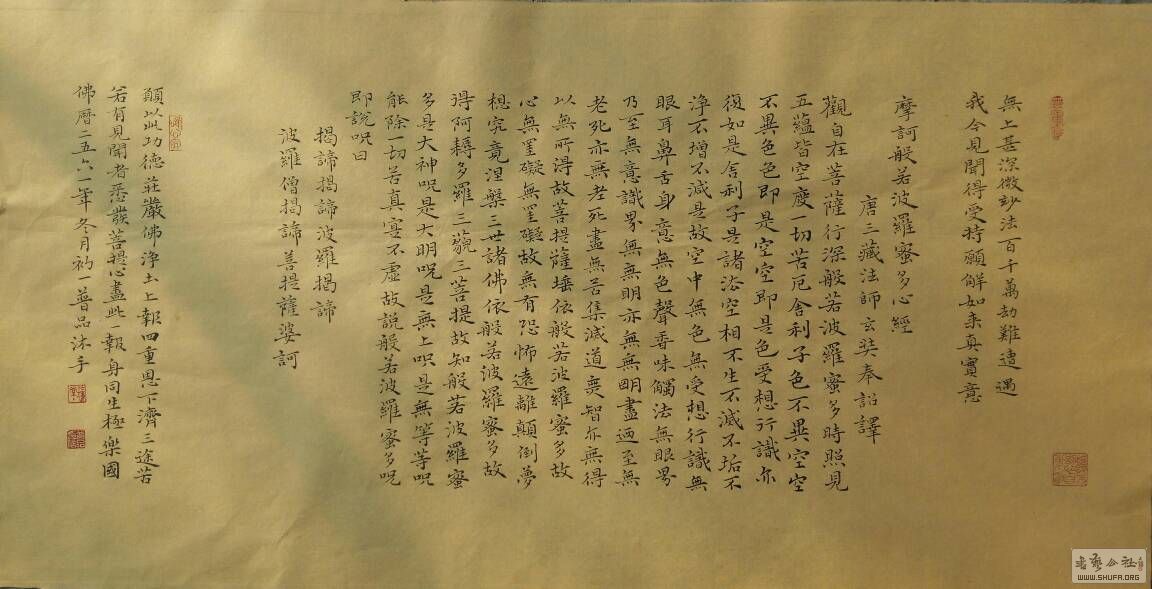 無上甚深微妙法百千萬劫難遭遇
我今見聞得受持願解如来真實意
摩訶般若波羅蜜多心經
唐三藏法師玄奘奉詔譯
觀自在菩薩行深般若波羅蜜多時照見
五蘊皆空度一切苦厄舍利子色不異空空
不異色色即是空空即是色受想行識亦
復如是舍利子是諸法空相不生不滅不垢不
淨不增不減是故空中無色無受想行識無
眼耳鼻舌身意無色聲香味觸法無眼界
乃至無意識界無無明亦無無明盡迺至無
老死亦無老死盡無苦集滅道無智亦無得
以無所得故菩提薩埵依般若波羅蜜多故
心無罣礙無罣礙故無有恐怖遠離顛倒夢
想究竟涅槃三世諸佛依般若波羅蜜多故
得阿耨多羅三藐三菩提故知般若波羅蜜
多是大神呪是大明呪是無上呪是無等等呪
能除一切苦真實不虛故說般若波羅蜜多呪
即說呪曰
揭諦揭諦波羅揭諦
波羅僧揭諦菩提薩婆訶
願以此功德莊嚴佛淨土上報四重恩下濟三途苦
若有見聞者悉發菩提心盡此一報身同生極樂國
佛曆二五六一年冬月初一普品沐手
书艺公社
WWW.SHUFA.ORG